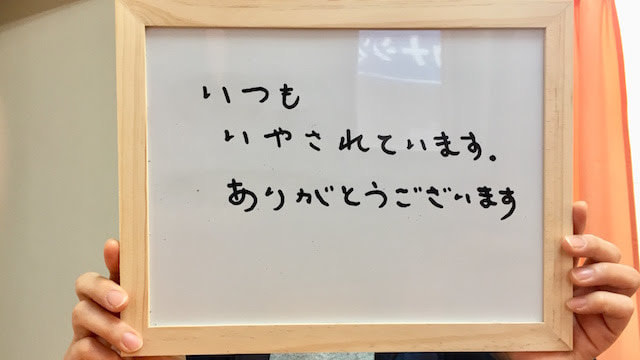 いつも
いやされています.
ありがとうございます